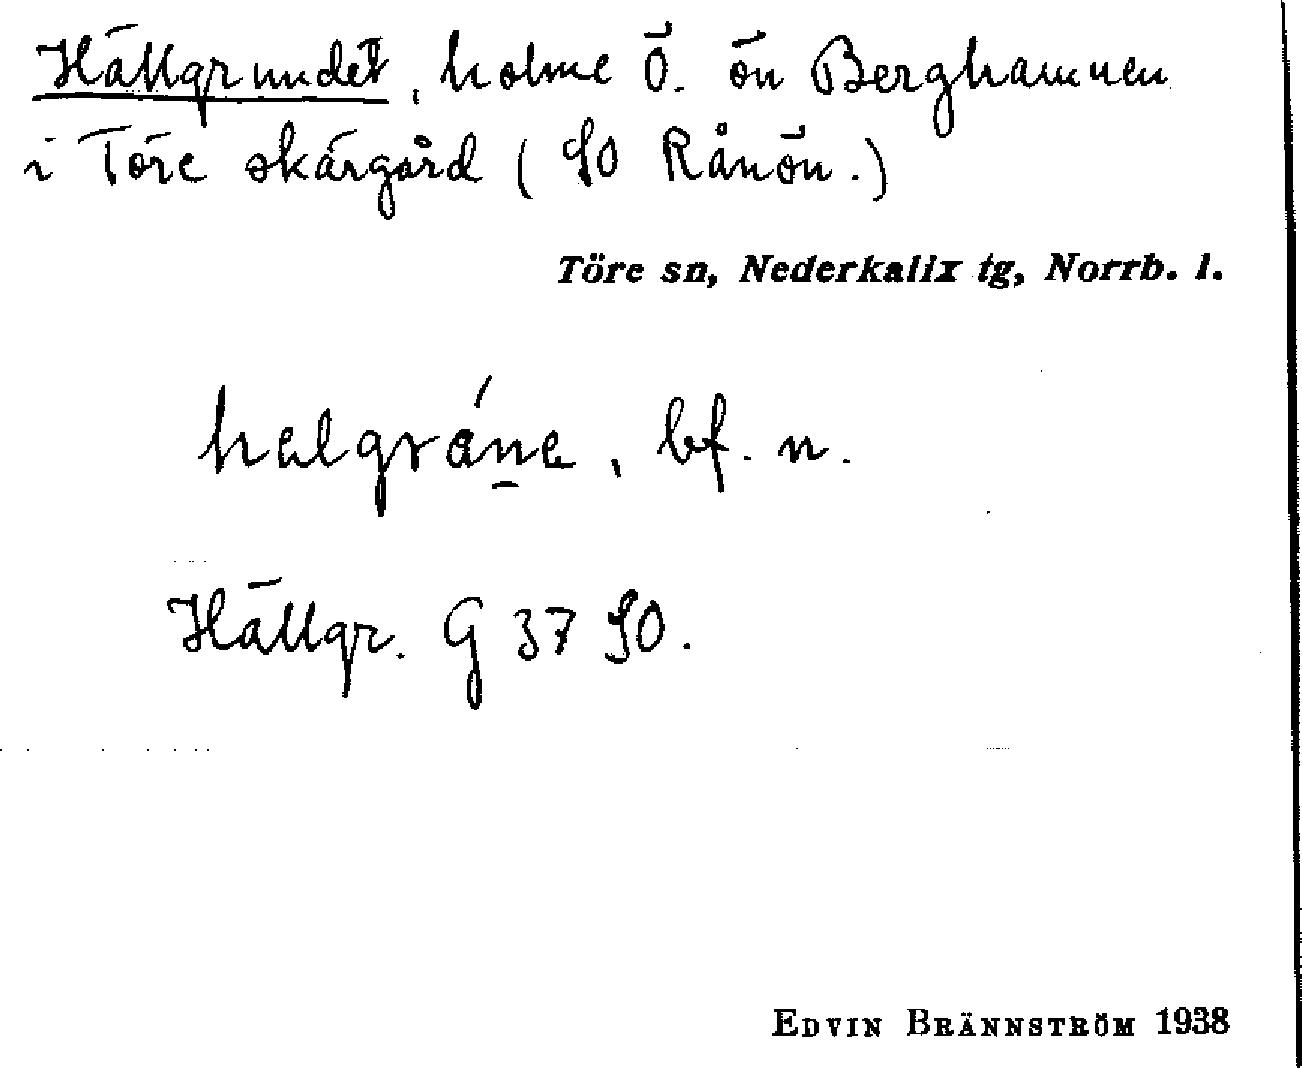 Hällgrundet, holme Ö. ön Berghamnen
i Töre skärgård (SO Rånön.)
Töre sn, Nederkalix tg, Norrb. l.
halgrána, bf. n.
Hällgr. G 37 SO.
EDVIN BRÄNNSTRÖM 1938